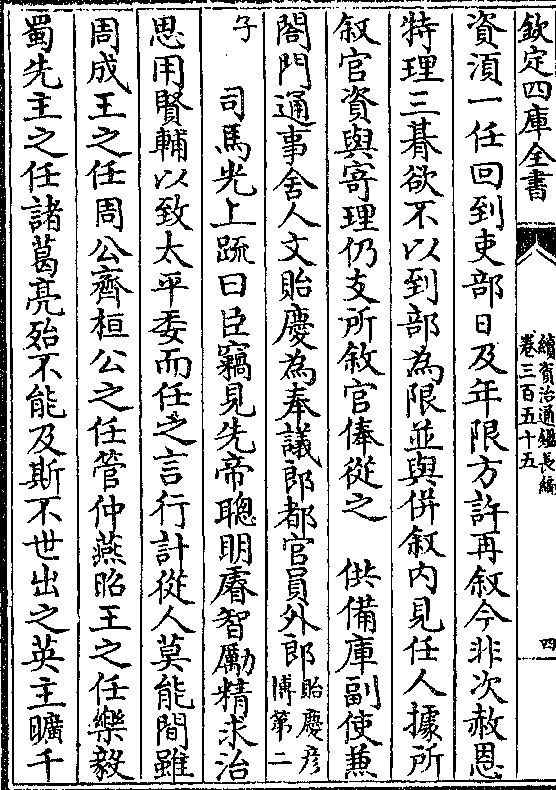 欽定四庫全書
續資治通鑑長編
卷三百五十五
四
資湏一任回到吏部日及年限方許再叙今非次赦恩
特理三碁欲不以到部為限並與併叙内見任人據所
叙官資與寄理仍支所敘官俸從之 供備庫副使兼
閤門通事舍人文貽慶為奉議郎都官員外郎貽慶彦
博第二
子 司馬光上疏曰臣竊見先帝聰明睿智勵精求治
思用賢輔以致太平委而任之言行計從人莫能間雖
周成王之任周公齊桓公之任管仲燕昭王之任樂毅
蜀先主之任諸葛亮殆不能及斯不世出之英主曠千